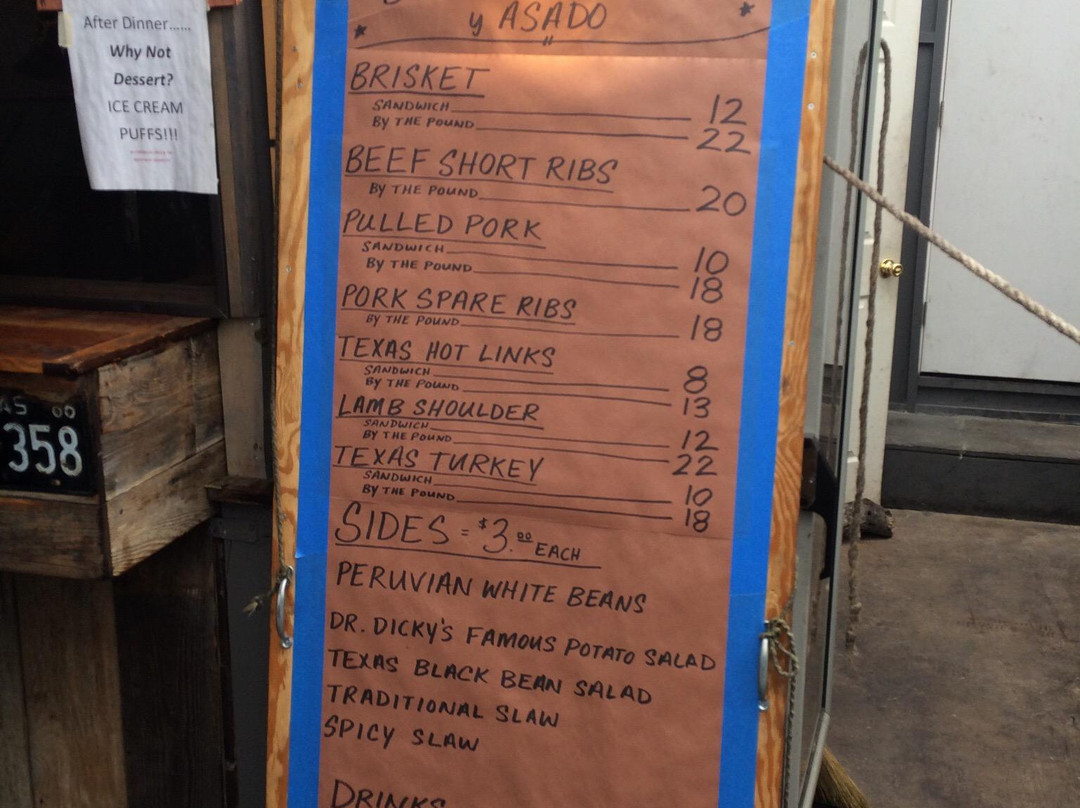 After Dinner......
Why Not
Dessert?
ICE CREAM
PUFFS!!!
y ASADO
BRISKET
SANDWICH 12
BY THE POUND 22
BEEF SHORT RIBS
BY THE POUND 20
PULLED PORK
SANDWICH 10
BY THE POUND 18
PORK SPARE RIBS
BY THE POUND 18
TEXAS HOT LINKS
SANDWICH 8
BY THE POUND 13
LAMB SHOULDER
SANDWICH 12
BY THE POUND 22
TEXAS TURKEY
SANDWICH 10
BY THE POUND 18
SIDES = $3.00 EACH
PERUVIAN WHITE BEANS
DR. DICKY'S FAMOUS POTATO SALAD
TEXAS BLACK BEAN SALAD
TRADITIONAL SLAW
SPICY SLAW
DRINKS
AS 06
358